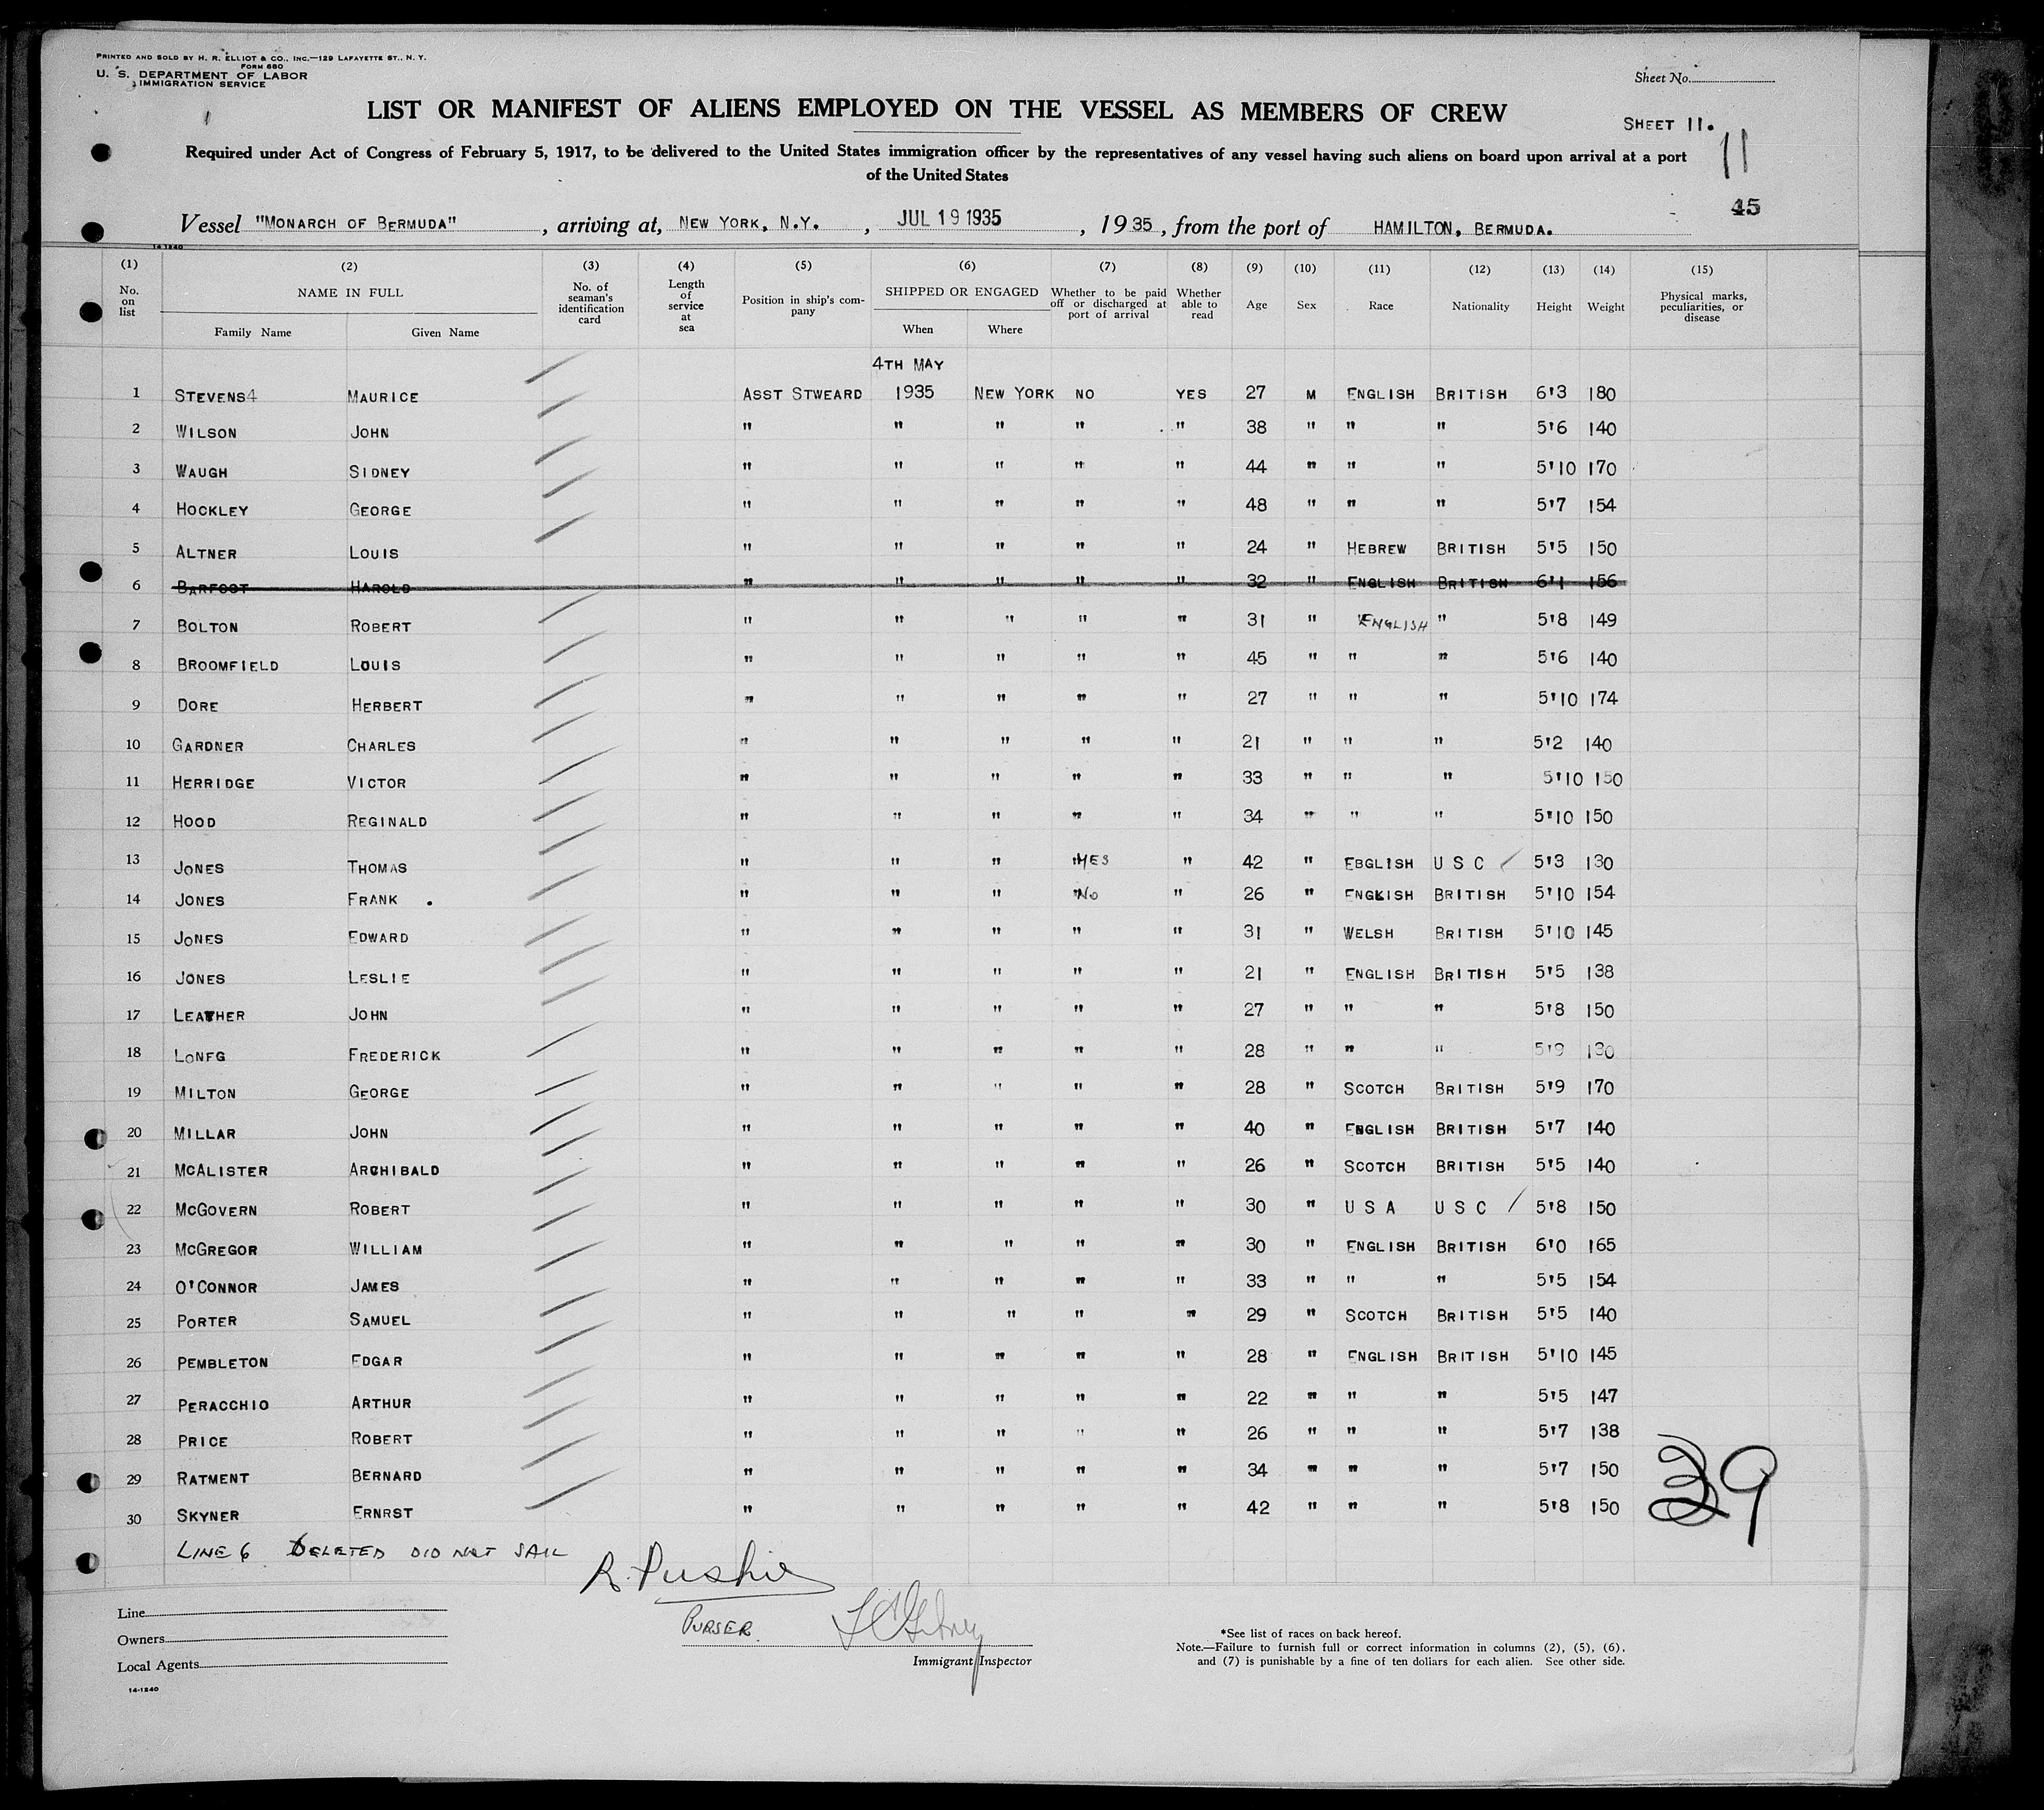 PRINTED AND SOLD BY H. R. ELLIOT & CO., INC.—129 LAFAYETTE ST., N. Y.
FORM 680
U. S. DEPARTMENT OF LABOR
IMMIGRATION SERVICE
Sheet No.
LIST OR MANIFEST OF ALIENS EMPLOYED ON THE VESSEL AS MEMBERS OF CREW
SHEET 11.
11
Required under Act of Congress of February 5, 1917, to be delivered to the United States immigration officer by the representatives of any vessel having such aliens on board upon arrival at a port
of the United States
45
Vessel "MONARCH OF BERMUDA", arriving at, NEW YORK, N.Y., JUL 19 1935, 1935, from the port of HAMILTON, BERMUDA.
14-1240
(1) (2) (3) (4) (5) (6) (7) (8) (9) (10) (11) (12) (13) (14) (15)
No. on list NAME IN FULL Family Name Given Name No. of seaman's identification card Length of service at sea Position in ship's company SHIPPED OR ENGAGED When Where Whether to be paid off or discharged at port of arrival Whether able to read Age Sex Race Nationality Height Weight Physical marks, peculiarities, or disease
4TH MAY
1 STEVENS4 MAURICE ASST STWEARD 1935 NEW YORK NO YES 27 M ENGLISH BRITISH 6'3 180
2 WILSON JOHN " " " " " 38 " " " 5'6 140
3 WAUGH SIDNEY " " " " " 44 " " " 5'10 170
4 HOCKLEY GEORGE " " " " " 48 " " " 5'7 154
5 ALTNER LOUIS " " " " " 24 " HEBREW BRITISH 5'5 150
6 BARFOOT HAROLD " " " " " 32 " ENGLISH BRITISH 6'1 156
7 BOLTON ROBERT " " " " " 31 " ENGLISH " 5'8 149
8 BROOMFIELD LOUIS " " " " " 45 " " " 5'6 140
9 DORE HERBERT " " " " " 27 " " " 5'10 174
10 GARDNER CHARLES " " " " " 21 " " " 5'2 140
11 HERRIDGE VICTOR " " " " " 33 " " " 5'10 150
12 HOOD REGINALD " " " " " 34 " " " 5'10 150
13 JONES THOMAS " " " YES " 42 " EBGLISH U S C 5'3 130
14 JONES FRANK . " " " No " 26 " ENGKISH BRITISH 5'10 154
15 JONES EDWARD " " " " " 31 " WELSH BRITISH 5'10 145
16 JONES LESLIE " " " " " 21 " ENGLISH BRITISH 5'5 138
17 LEATHER JOHN " " " " " 27 " " " 5'8 150
18 LONFG FREDERICK " " " " " 28 " " " 5'9 130
19 MILTON GEORGE " " " " " 28 " SCOTCH BRITISH 5'9 170
20 MILLAR JOHN " " " " " 40 " ENGLISH BRITISH 5'7 140
21 MCALISTER ARCHIBALD " " " " " 26 " SCOTCH BRITISH 5'5 140
22 MCGOVERN ROBERT " " " " " 30 " U S A U S C 5'8 150
23 MCGREGOR WILLIAM " " " " " 30 " ENGLISH BRITISH 6'0 165
24 O'CONNOR JAMES " " " " " 33 " " " 5'5 154
25 PORTER SAMUEL " " " " " 29 " SCOTCH BRITISH 5'5 140
26 PEMBLETON EDGAR " " " " " 28 " ENGLISH BRITISH 5'10 145
27 PERACCHIO ARTHUR " " " " " 22 " " " 5'5 147
28 PRICE ROBERT " " " " " 26 " " " 5'7 138
29 RATMENT BERNARD " " " " " 34 " " " 5'7 150
30 SKYNER ERNRST " " " " " 42 " " " 5'8 150
39
LINE 6 DELETED DID NOT SAIL
R. Pushie
PURSER.
Line
Owners
Local Agents
Immigrant Inspector
14-1240
*See list of races on back hereof.
Note.—Failure to furnish full or correct information in columns (2), (5), (6),
and (7) is punishable by a fine of ten dollars for each alien. See other side.